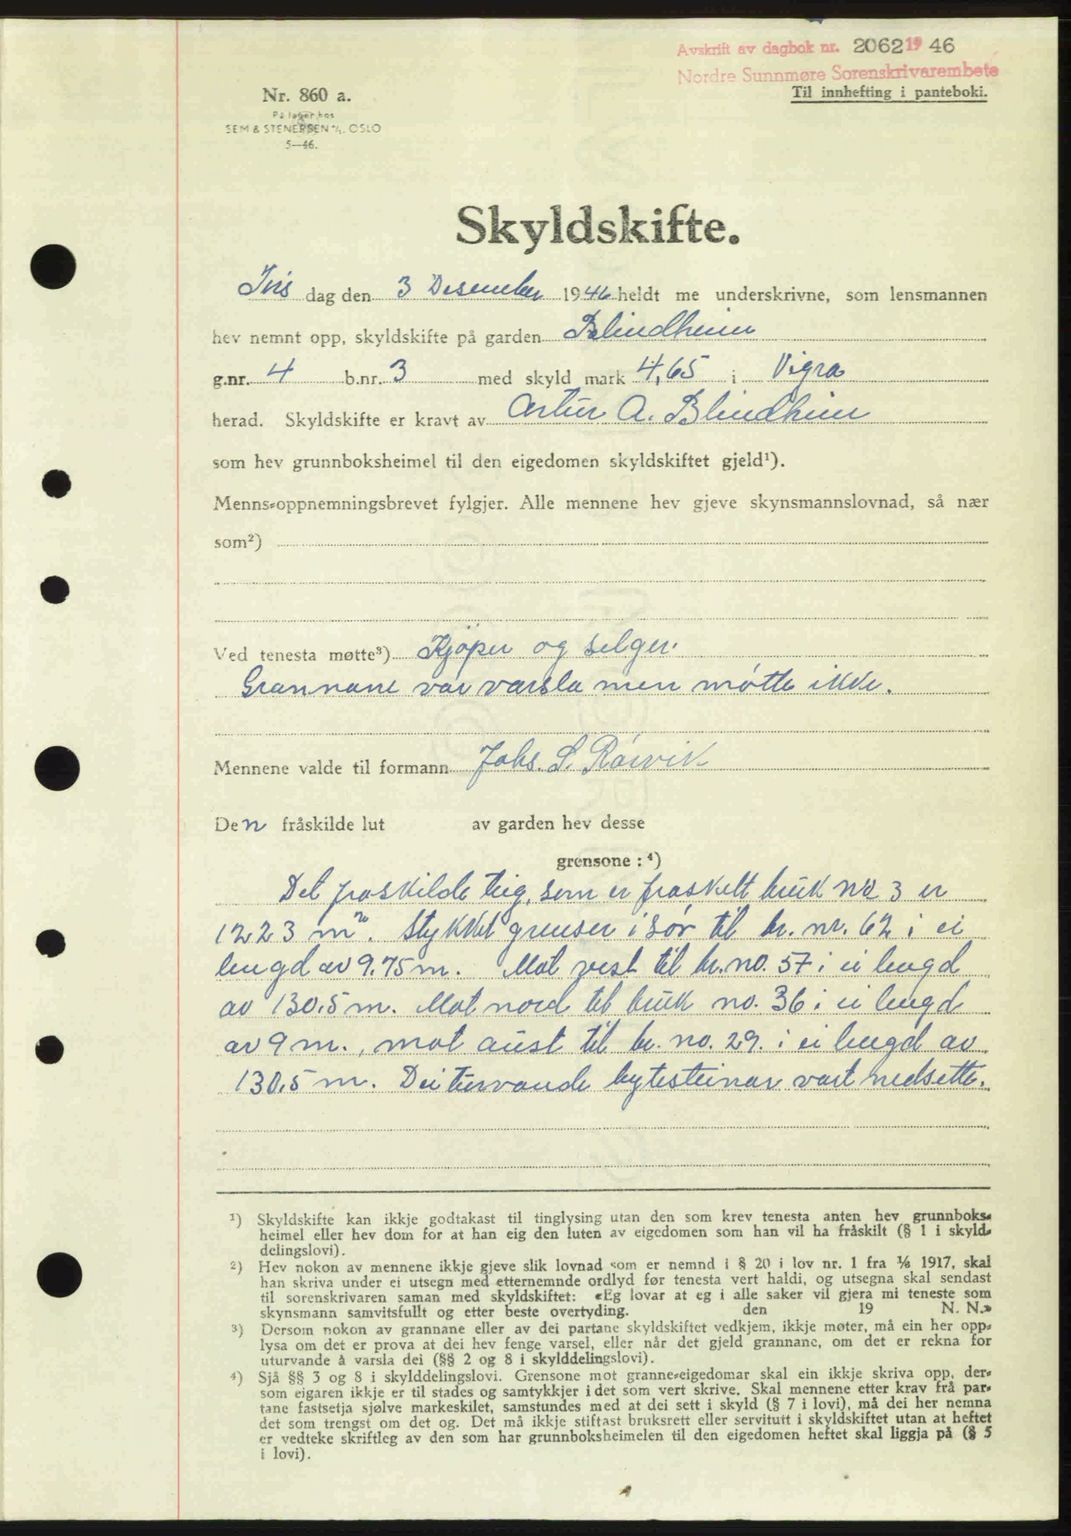 Avskrift av dagbok nr. 2062 1946
Nordre Sunnmøre Sorenskrivarembete
Til innhefting i panteboki.
Nr. 860 a.
På lager hos
SEM & STENERSEN A/S. OSLO
5—46.
Skyldskifte.
Tris dag den 3 Desember 1946 heldt me underskrivne, som lensmannen
hev nemnt opp, skyldskifte på garden Blindheim
g.nr. 4 b.nr. 3 med skyld mark 4,65 i Vigra
herad. Skyldskifte er kravt av Artur A. Blindheim
som hev grunnboksheimel til den eigedomen skyldskiftet gjeld¹).
Menns-oppnemningsbrevet fylgjer. Alle mennene hev gjeve skynsmannslovnad, så nær
som²)
Ved tenesta møtte³) Kjøper og selger.
Grannane var varsla men møtte ikke.
Mennene valde til formann Johs. S. Rørvik
Den fråskilde lut av garden hev desse
grensone : ⁴)
Det fraskilde teig, som er fraskelt bruk no 3 er
1223 m². Stykket grenser i sør til br. nr. 62 i ei
lengd av 9.75 m. Mot vest til br. no. 57 i ei lengd
av 130,5 m. Mot nord til bruk no. 36 i ei lengd
av 9 m., mot aust til br. no. 29. i ei lengd av
130,5 m. Dei turvande bytesteinar vart nedsette.
¹) Skyldskifte kan ikkje godtakast til tinglysing utan den som krev tenesta anten hev grunnboks-
heimel eller hev dom for at han eig den luten av eigedomen som han vil ha fråskilt (§ 1 i skyld-
delingslovi).
²) Hev nokon av mennene ikkje gjeve slik lovnad som er nemnd i § 20 i lov nr. 1 fra ⅙ 1917, skal
han skriva under ei utsegn med etternemnde ordlyd før tenesta vert haldi, og utsegna skal sendast
til sorenskrivaren saman med skyldskiftet: «Eg lovar at eg i alle saker vil gjera mi teneste som
skynsmann samvitsfullt og etter beste overtyding. den 19 N. N.»
³) Dersom nokon av grannane eller av dei partane skyldskiftet vedkjem, ikkje møter, må ein her opp-
lysa om det er prova at dei hev fenge varsel, eller når det gjeld grannane, om det er rekna for
uturvande å varsla dei (§§ 2 og 8 i skylddelingslovi).
⁴) Sjå §§ 3 og 8 i skylddelingslovi. Grensone mot granne-eigedomar skal ein ikkje skriva opp, der-
som eigaren ikkje er til stades og samtykkjer i det som vert skrive. Skal mennene etter krav frå par-
tane fastsetja sjølve markeskilet, samstundes med at dei sett i skyld (§ 7 i lovi), må dei her nemna
det som trengst om det og. Det må ikkje stiftast bruksrett eller servitutt i skyldskiftet utan at heftet
er vedteke skriftleg av den som har grunnboksheimelen til den eigedomen heftet skal liggja på (§ 5
i lovi).